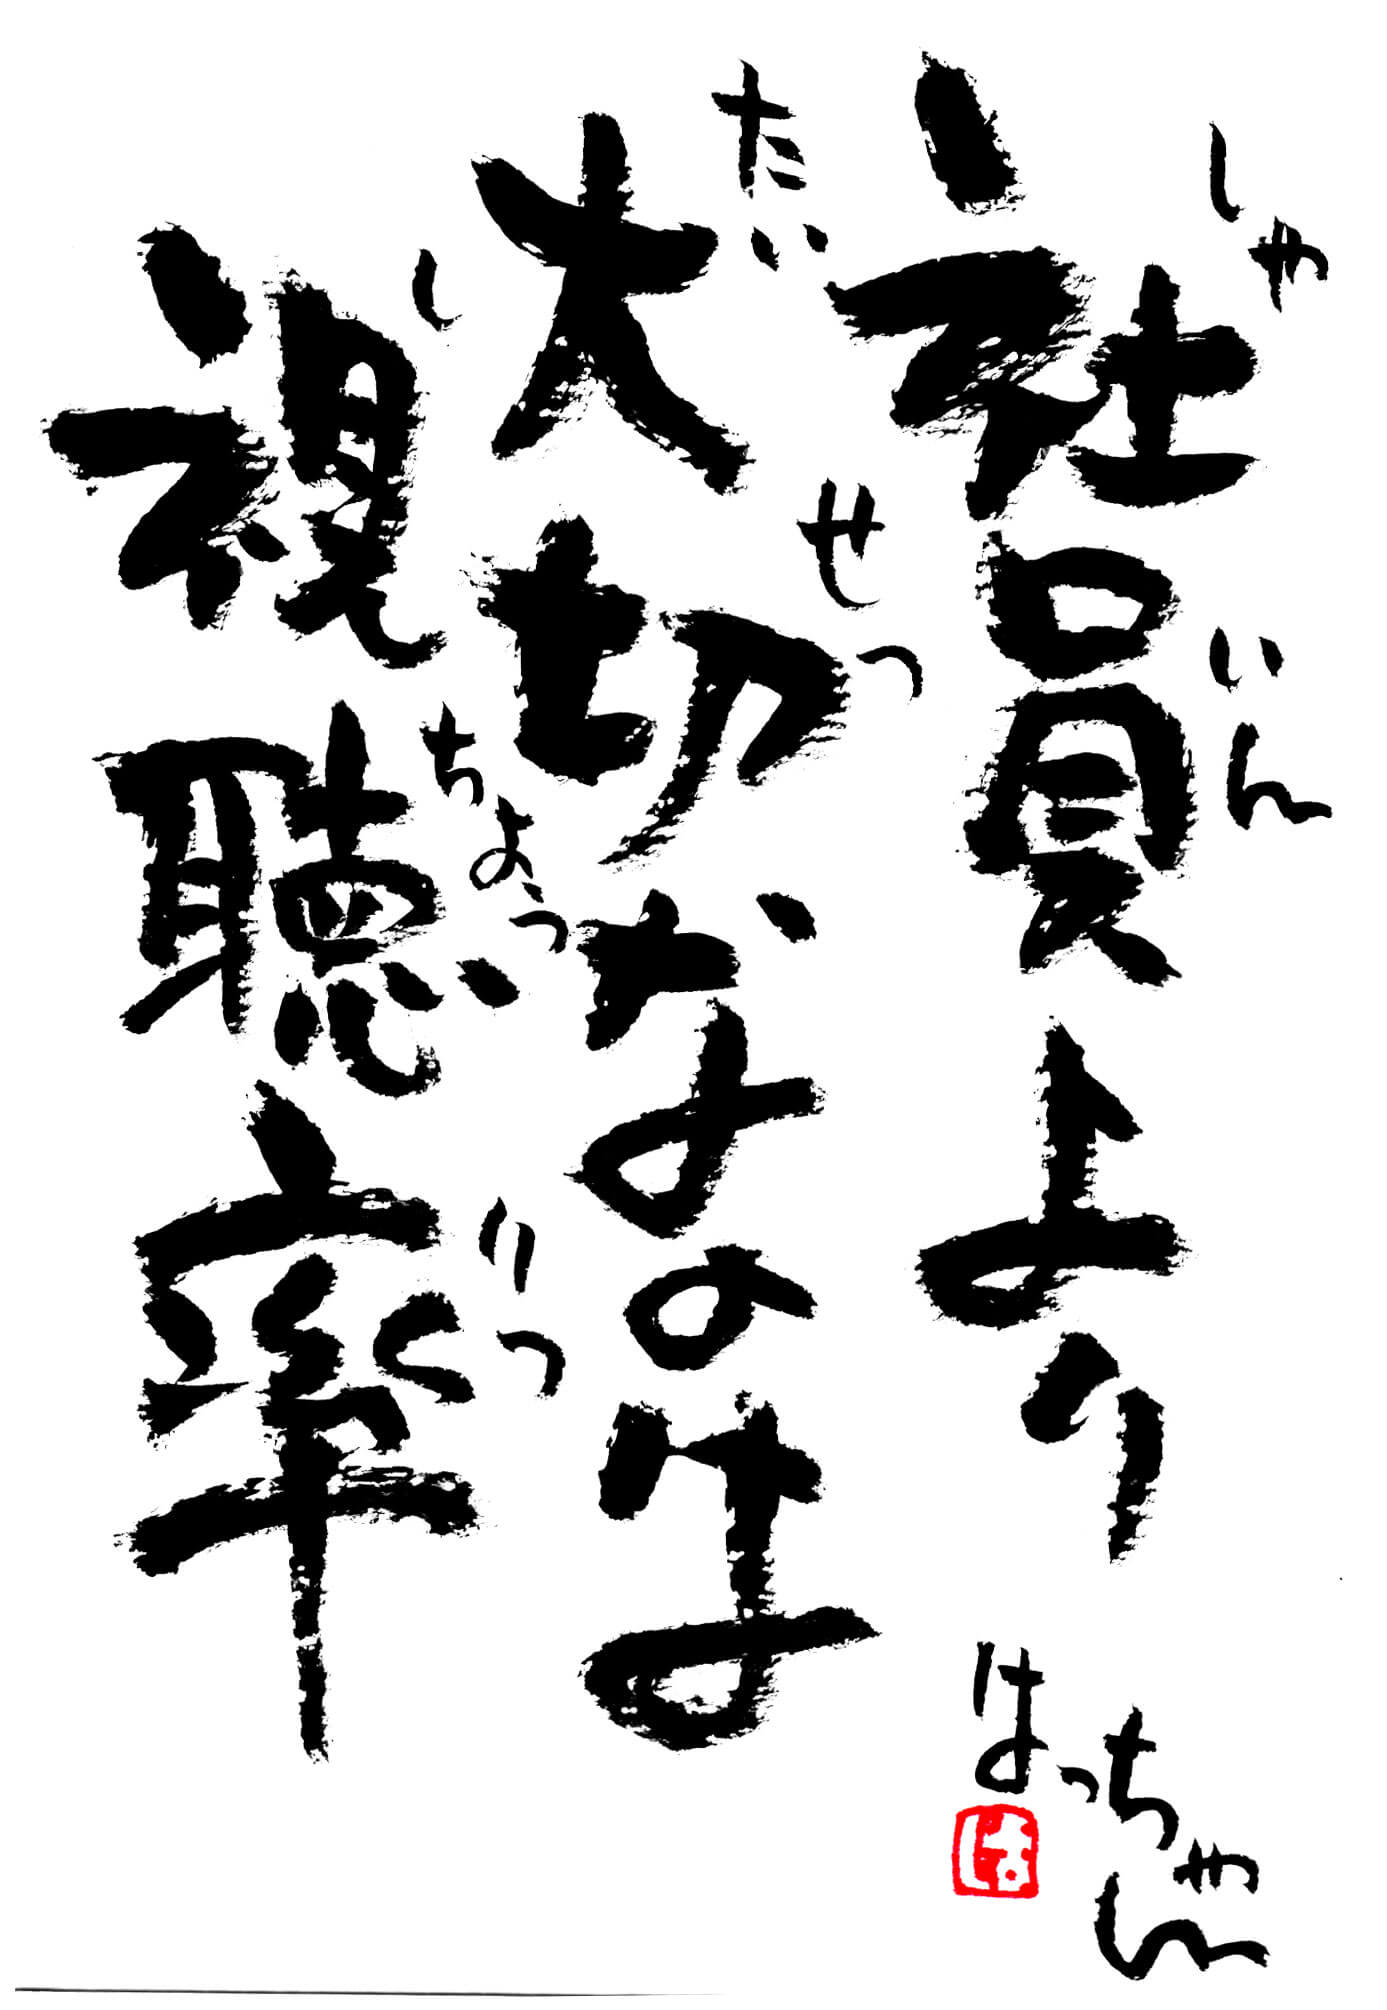 社員より
しゃいん
大切なのは
たいせつ
視聴率
しちょうりつ
はっちゃん
は